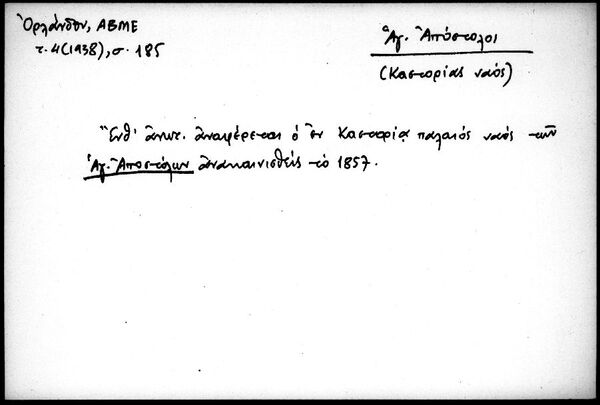 Ὀρλάνδου, ΑΒΜΕ
τ. 4 (1938), σ. 185
Ἅγ. Ἀπόστολοι
(Καστορίας ναός)
Ἔνθ' ἀνωτ. ἀναφέρεται ὁ ἐν Καστορίᾳ παλαιός ναός τῶν
Ἁγ. Ἀποστόλων ἀνακαινισθείς τό 1857.